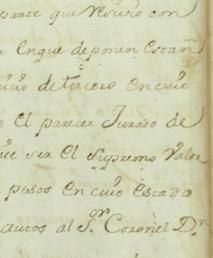 parte que resivio con
en que deponen Estañ
icio de tercero en cuio
s El parecer Jurado de
que ser El Supremo Valor
pesos En cuio Estado
autos al S.or Coronel D.n